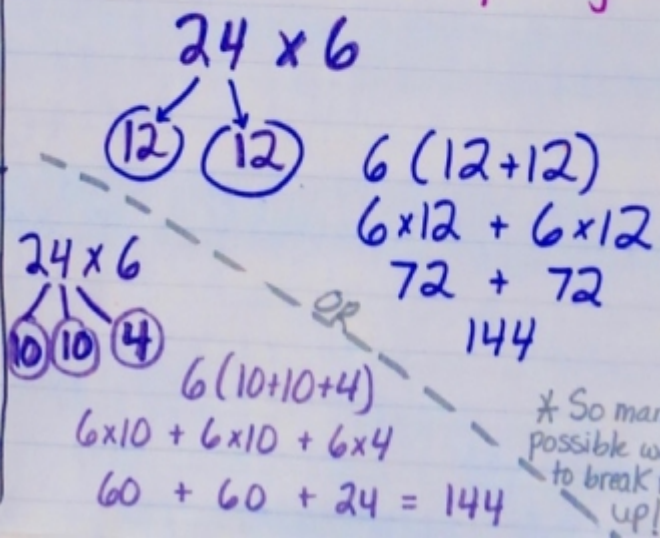 24 × 6
12 12
6 (12+12)
6×12 + 6×12
72 + 72
144
OR
24 × 6
10 10 4
6 (10+10+4)
6×10 + 6×10 + 6×4
60 + 60 + 24 = 144
* So
possible
to break
up!